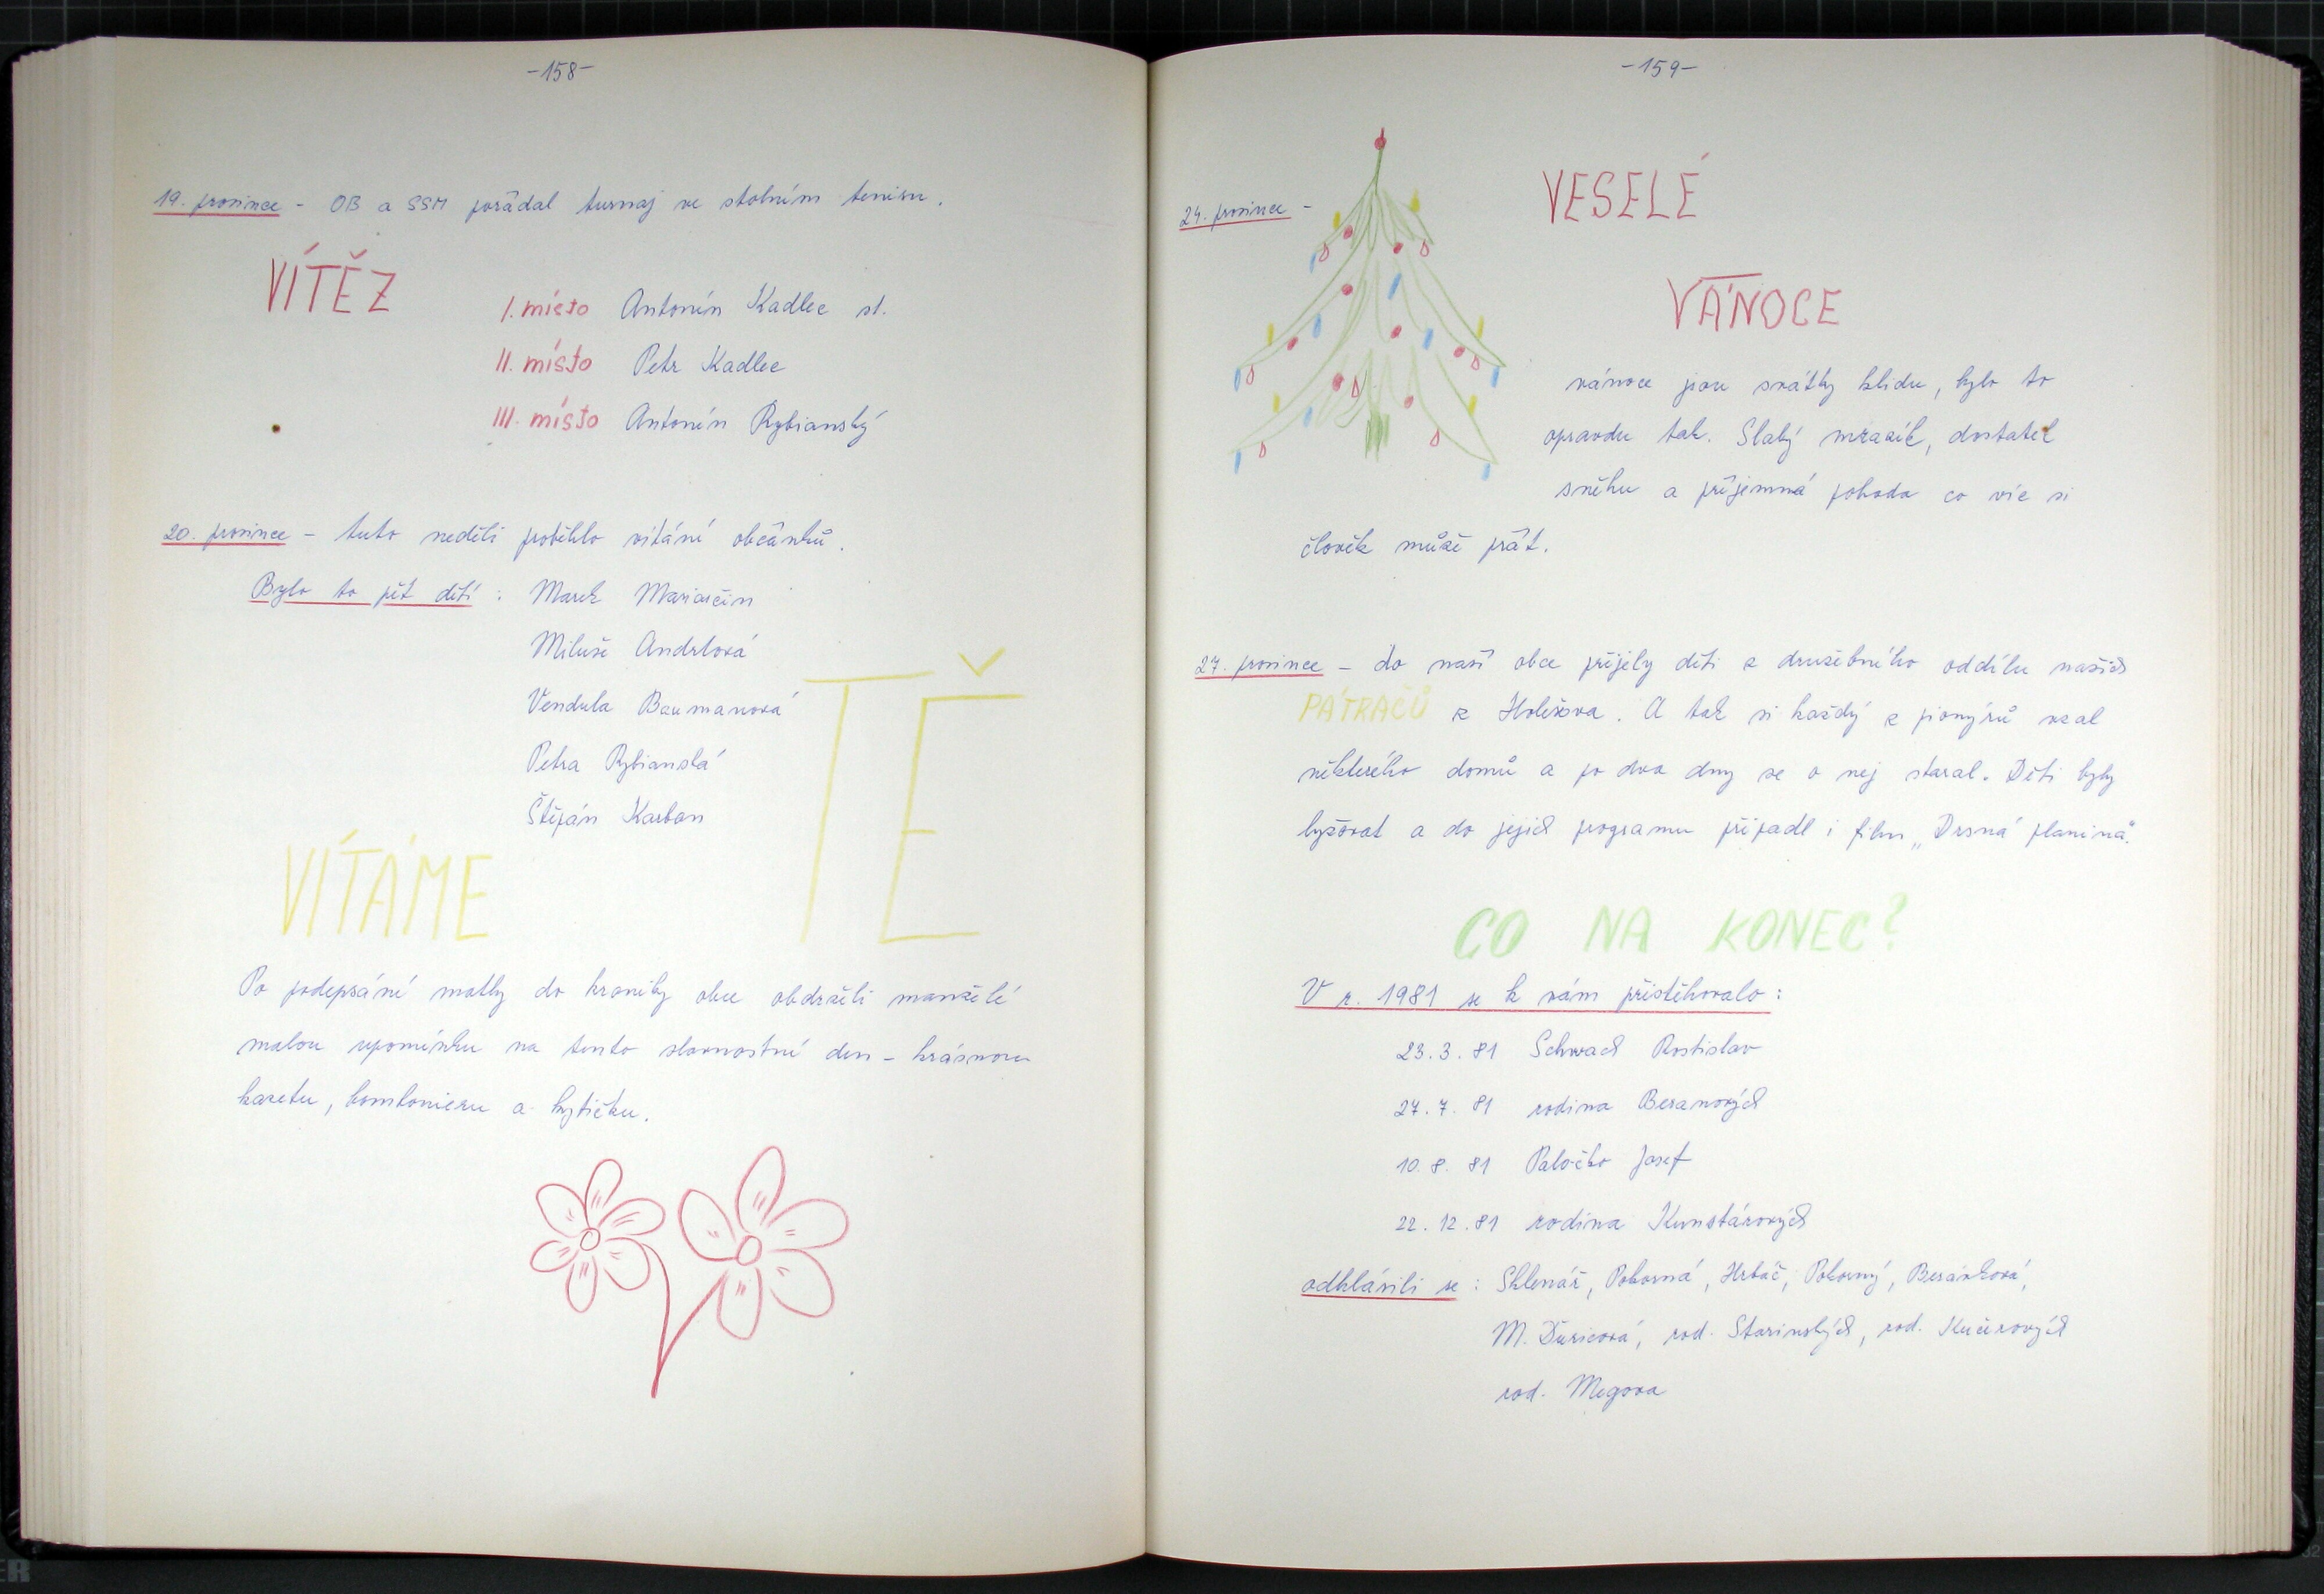 -158-
19. prosince - OB a SSM pořádal turnaj ve stolním tenisu.
VÍTĚZ
I. místo Antonín Kadlec st.
II. místo Petr Kadlec
III. místo Antonín Rybianský
20. prosince - tuto neděli proběhlo vítání občánků.
Bylo to pět dětí : Marek Mariarčin
Miluše Andrlová
Vendula Baumanová
Petra Rybianská
Štěpán Karban
VÍTÁME TĚ
Po podepsání matky do kroniky obce obdrželi manželé
malou upomínku na tento slavnostní den - krásnou
kazetu, bombonieru a kytičku.
-159-
24. prosince -
VESELÉ
VÁNOCE
vánoce jsou svátky klidu, bylo to
opravdu tak. Slabý mrazík, dostatek
sněhu a příjemná pohoda co víc si
člověk může přát.
27. prosince - do naší obce přijely děti z družebního oddílu našich
PÁTRAČŮ z Holešova. A tak si každý z pionýrů vzal
některého domů a po dva dny se o nej staral. Děti byly
lyžovat a do jejich programu připadl i film „Drsná planina".
CO NA KONEC?
V r. 1981 se k nám přistěhovalo :
23.3.81 Schwach Rostislav
27.7.81 rodina Beranových
10.8.81 Paločko Josef
22.12.81 rodina Kunstárových
odhlásili se : Sklenář, Pokorná, Hrbáč, Pokorný, Beránková,
M. Ďuricová, rod. Starinských, rod. Kučerových
rod. Megova